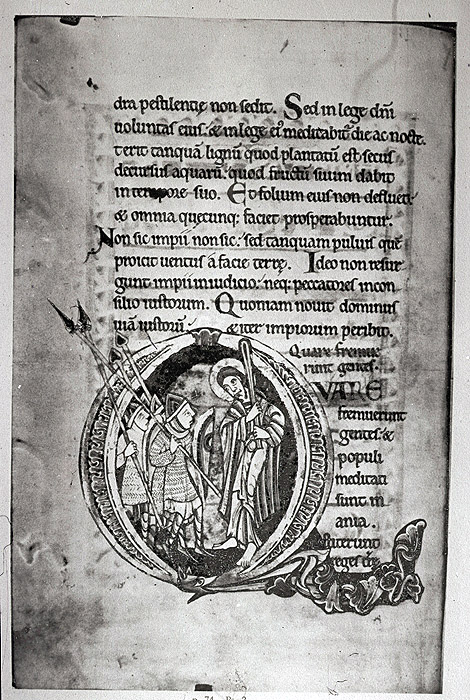 dra pestilentię non sedit. Sed in lege dnī
uoluntas eius: & in lege eī meditabit̄ die ac nocte.
terit tanquā lignū quod plantatū est secus
decursus aquarū: quod fructū suum dabit
in tempore suo. Et folium eius non defluet:
& omnia quecunq; faciet prosperabuntur.
Non sic impii non sic: sed tanquam puluis quē
proicit uentus a facie terrę. Ideo non resur
gunt impii in iudicio: neq; peccatores in con
silio iustorum. Quoniam nouit dominus
uiā iustorū: & iter impiorum peribit.
Quare fremue
runt gentes.
VARE
fremuerunt
gentes: &
populi
meditati
sunt in
ania.
stiterunt
reges